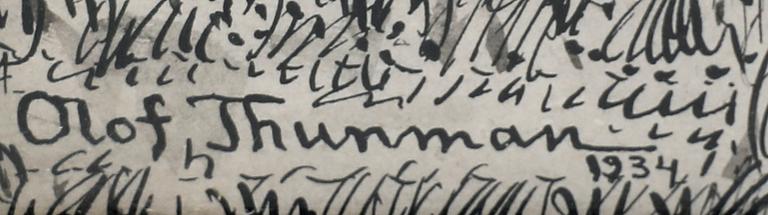 Olof Thunman
1934